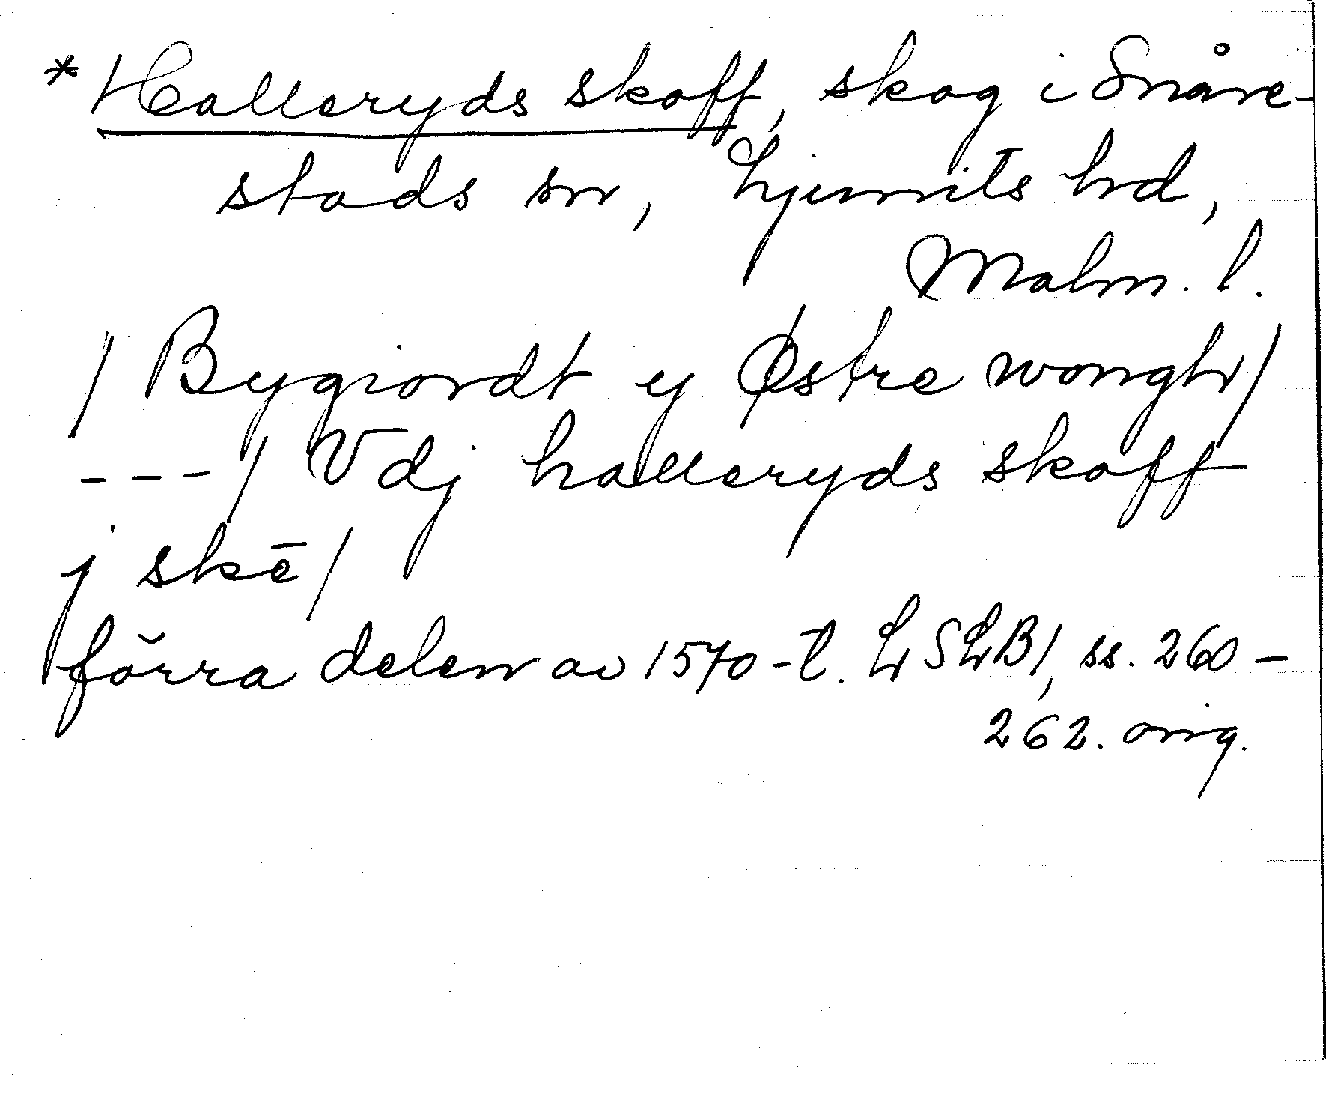 *Halleryds skoff, skog i Snåre-
stads sn, Ljunits hd,
Malm. l.
/ Bygiordt y Østre wongh/
---/ Vdj halleryds skoff
j skē/
förra delen av 1570-t. LSLB1, ss. 260-
262. orig.